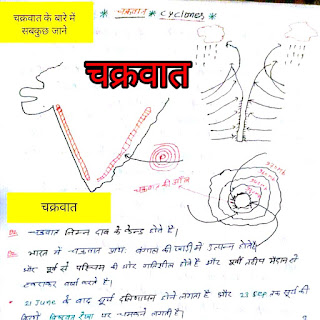 चक्रवात के बारे में
सबकुछ जाने
* चक्रवात * CYCLONES *
चक्रवात
चक्रवात की आँख
चक्रवात
चक्रवात निम्न दाब के केन्द्र होते हैं।
भारत में चक्रवात प्रायः बंगाल की खाड़ी में उत्पन्न होते हैं
और पूर्व से पश्चिम की ओर गतिशील होते हैं और पूर्वी तटीय मैदान से
टकराकर वर्षा करते हैं।
21 June के बाद सूर्य दक्षिणायन होने लगता है और 23 Sep तक सूर्य की
किरणें विषुवत रेखा पर चमकने लगती हैं।